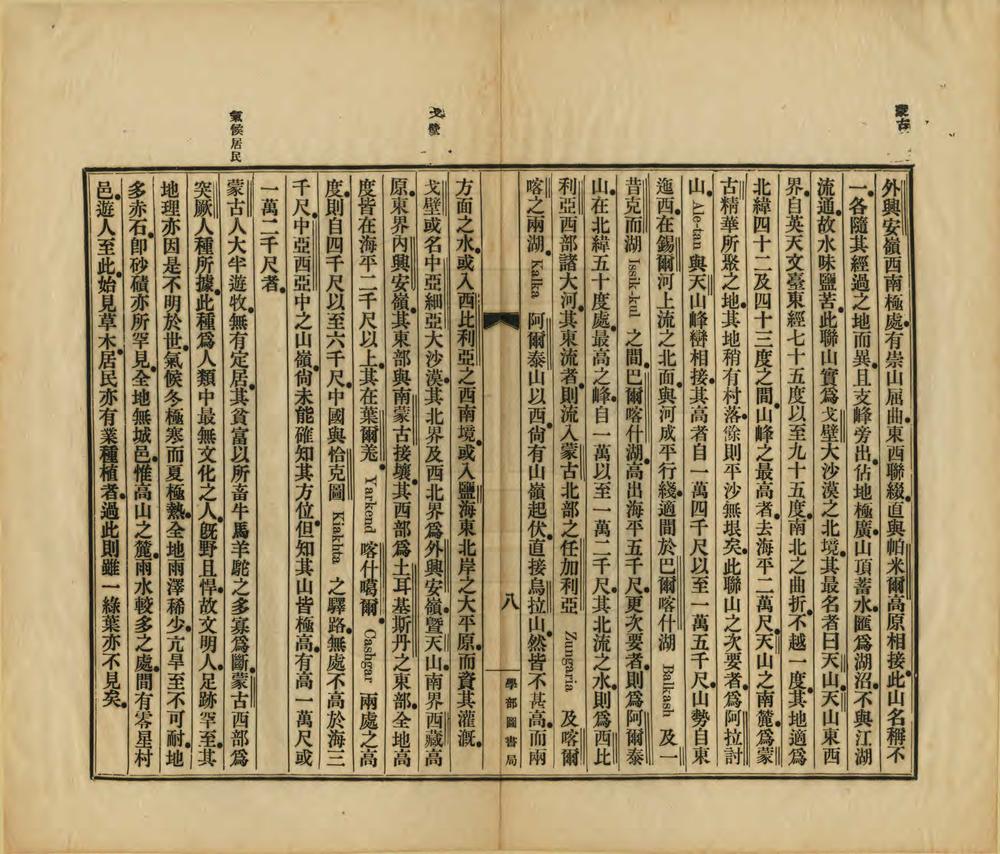 蒙古
外興安嶺西南極處有崇山屈曲東西聯綴直與帕米爾高原相接此山名稱不
一各隨其經過之地而異且支峰旁出佔地極廣山頂蓄水匯爲湖沼不與江湖
流通故水味鹽苦此聯山實爲戈壁大沙漠之北境其最名者曰天山天山東西
界自英天文臺東經七十五度以至九十五度南北之曲折不越一度其地適爲
北緯四十二及四十三度之間山峰之最高者去海平二萬尺天山之南麓爲蒙
古精華所聚之地其地稍有村落餘則平沙無垠矣此聯山之次要者爲阿拉討
山 Ale-tan 與天山峰巒相接其高者自一萬四千尺以至一萬五千尺山勢自東
迤西在錫爾河上流之北面與河成平行綫適間於巴爾喀什湖 Balkash 及一
昔克而湖 Issik-kul 之間巴爾喀什湖高出海平五千尺更次要者則爲阿爾泰
山在北緯五十度處最高之峰自一萬以至一萬二千尺其北流之水則爲西比
利亞西部諸大河其東流者則流入蒙古北部之任加利亞 Zungaria 及喀爾
喀之兩湖 Kalka 阿爾泰山以西尙有山嶺起伏直接烏拉山然皆不甚高而兩
八
學部圖書局
方面之水或入西比利亞之西南境或入鹽海東北岸之大平原而資其灌漑
戈壁
戈壁或名中亞細亞大沙漠其北界及西北界爲外興安嶺暨天山南界西藏高
原東界內興安嶺其東部與南蒙古接壤其西部爲土耳基斯丹之東部全地高
度皆在海平二千尺以上其在葉爾羌 Yarkend 喀什噶爾 Cashgar 兩處之高
度則自四千尺以至六千尺中國與恰克圖 Kiakhta 之驛路無處不高於海三
千尺中亞西亞中之山嶺尙未能確知其方位但知其山皆極高有高一萬尺或
一萬二千尺者
氣候居民
蒙古人大半遊牧無有定居其貧富以所畜牛馬羊駝之多寡爲斷蒙古西部爲
突厥人種所據此種爲人類中最無文化之人旣野且悍故文明人足跡罕至其
地理亦因是不明於世氣候冬極寒而夏極熱全地雨澤稀少亢旱至不可耐地
多赤石卽砂磧亦所罕見全地無城邑惟高山之麓雨水較多之處間有零星村
邑遊人至此始見草木居民亦有業種植者過此則雖一綠葉亦不見矣